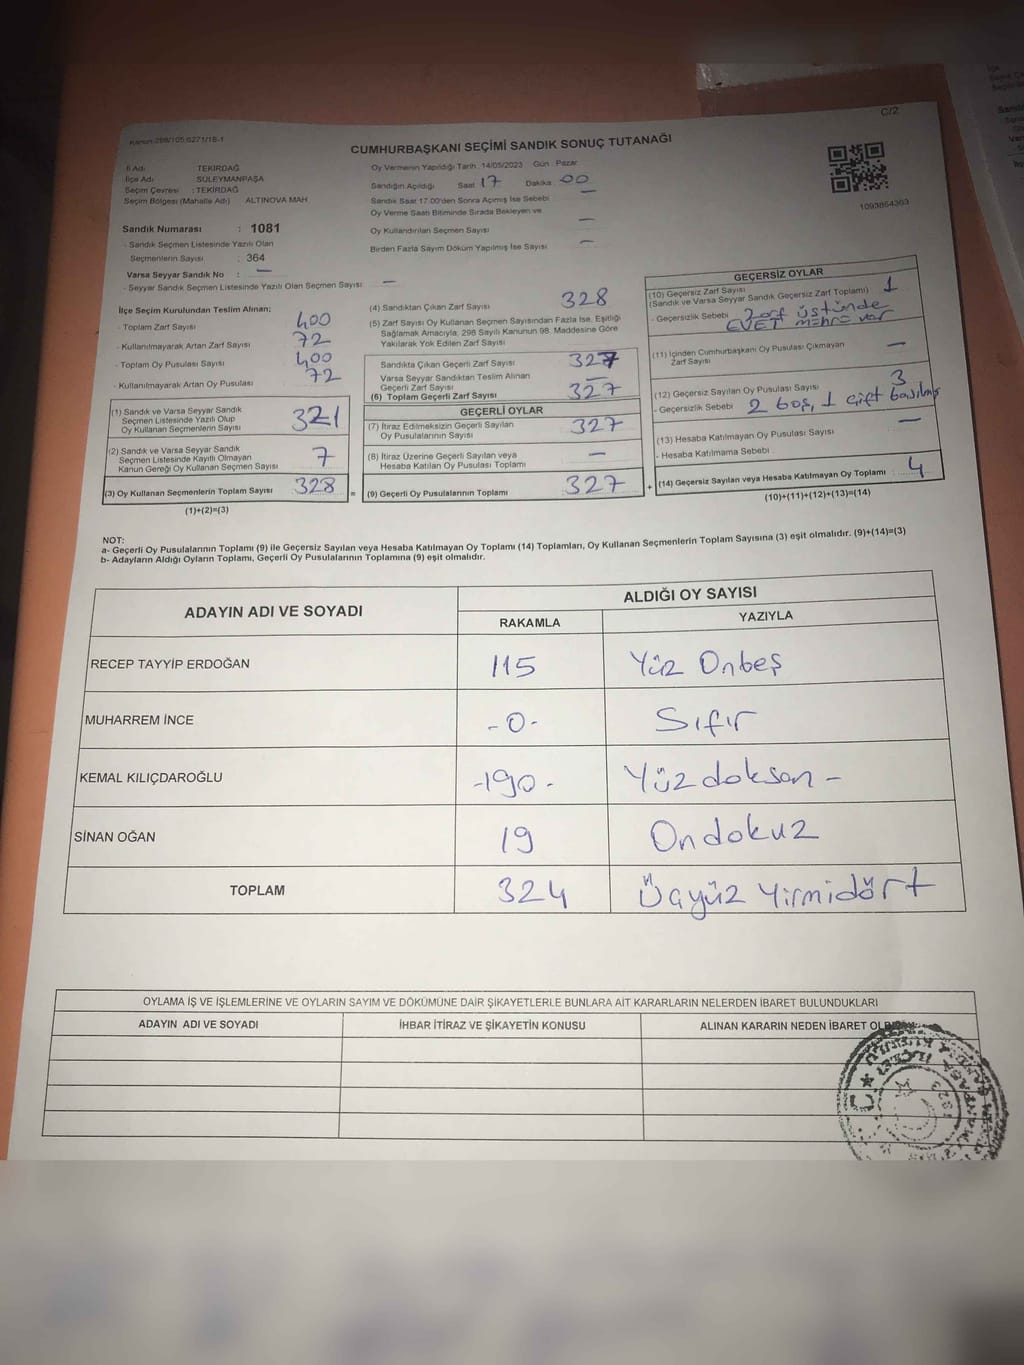 C/2
Kanun:298/105,6271/18-1
CUMHURBAŞKANI SEÇİMİ SANDIK SONUÇ TUTANAĞI
İl Adı TEKİRDAĞ
İlçe Adı SÜLEYMANPAŞA
Seçim Çevresi : TEKİRDAĞ
Seçim Bölgesi (Mahalle Adı) ALTINOVA MAH
Oy Vermenin Yapıldığı Tarih 14/05/2023 Gün : Pazar
Sandığın Açıldığı Saat 17 Dakika 00
Sandık Saat 17.00'den Sonra Açımış İse Sebebi —
Oy Verme Saati Bitiminde Sırada Bekleyen ve
Oy Kullandırılan Seçmen Sayısı —
Birden Fazla Sayım Döküm Yapılmış İse Sayısı —
1093854303
Sandık Numarası : 1081
- Sandık Seçmen Listesinde Yazılı Olan
Seçmenlerin Sayısı : 364
Varsa Seyyar Sandık No : —
- Seyyar Sandık Seçmen Listesinde Yazılı Olan Seçmen Sayısı: —
İlçe Seçim Kurulundan Teslim Alınan;
- Toplam Zarf Sayısı 400
- Kullanılmayarak Artan Zarf Sayısı 72
- Toplam Oy Pusulası Sayısı 400
- Kullanılmayarak Artan Oy Pusulası 72
(1) Sandık ve Varsa Seyyar Sandık
Seçmen Listesinde Yazılı Olup
Oy Kullanan Seçmenlerin Sayısı 321
(2) Sandık ve Varsa Seyyar Sandık
Seçmen Listesinde Kayıtlı Olmayan
Kanun Gereği Oy Kullanan Seçmen Sayısı 7
(3) Oy Kullanan Seçmenlerin Toplam Sayısı 328 =
(1)+(2)=(3)
(4) Sandıktan Çıkan Zarf Sayısı 328
(5) Zarf Sayısı Oy Kullanan Seçmen Sayısından Fazla İse, Eşitliği
Sağlamak Amacıyla, 298 Sayılı Kanunun 98. Maddesine Göre
Yakılarak Yok Edilen Zarf Sayısı
Sandıkta Çıkan Geçerli Zarf Sayısı 327
Varsa Seyyar Sandıktan Teslim Alınan
Geçerli Zarf Sayısı —
(6) Toplam Geçerli Zarf Sayısı 327
GEÇERLİ OYLAR
(7) İtiraz Edilmeksizin Geçerli Sayılan
Oy Pusulalarının Sayısı 327
(8) İtiraz Üzerine Geçerli Sayılan veya
Hesaba Katılan Oy Pusulası Toplamı —
(9) Geçerli Oy Pusulalarının Toplamı 327 +
GEÇERSİZ OYLAR
(10) Geçersiz Zarf Sayısı 1
(Sandık ve Varsa Seyyar Sandık Geçersiz Zarf Toplamı)
- Geçersizlik Sebebi Zarf üstünde
EVET mührü var
(11) İçinden Cumhurbaşkanı Oy Pusulası Çıkmayan
Zarf Sayısı —
(12) Geçersiz Sayılan Oy Pusulası Sayısı 3
- Geçersizlik Sebebi 2 boş, 1 çift basılmış
(13) Hesaba Katılmayan Oy Pusulası Sayısı —
- Hesaba Katılmama Sebebi
(14) Geçersiz Sayılan veya Hesaba Katılmayan Oy Toplamı 4
(10)+(11)+(12)+(13)=(14)
NOT:
a- Geçerli Oy Pusulalarının Toplamı (9) ile Geçersiz Sayılan veya Hesaba Katılmayan Oy Toplamı (14) Toplamları, Oy Kullanan Seçmenlerin Toplam Sayısına (3) eşit olmalıdır. (9)+(14)=(3)
b- Adayların Aldığı Oyların Toplamı, Geçerli Oy Pusulalarının Toplamına (9) eşit olmalıdır.
ADAYIN ADI VE SOYADI
ALDIĞI OY SAYISI
RAKAMLA YAZIYLA
RECEP TAYYİP ERDOĞAN 115 Yüz Onbeş
MUHARREM İNCE -0- Sıfır
KEMAL KILIÇDAROĞLU -190- Yüzdoksan -
SİNAN OĞAN 19 Ondokuz
TOPLAM 324 Üçyüz Yirmidört
OYLAMA İŞ VE İŞLEMLERİNE VE OYLARIN SAYIM VE DÖKÜMÜNE DAİR ŞİKAYETLERLE BUNLARA AİT KARARLARIN NELERDEN İBARET BULUNDUKLARI
ADAYIN ADI VE SOYADI İHBAR İTİRAZ VE ŞİKAYETİN KONUSU ALINAN KARARIN NEDEN İBARET